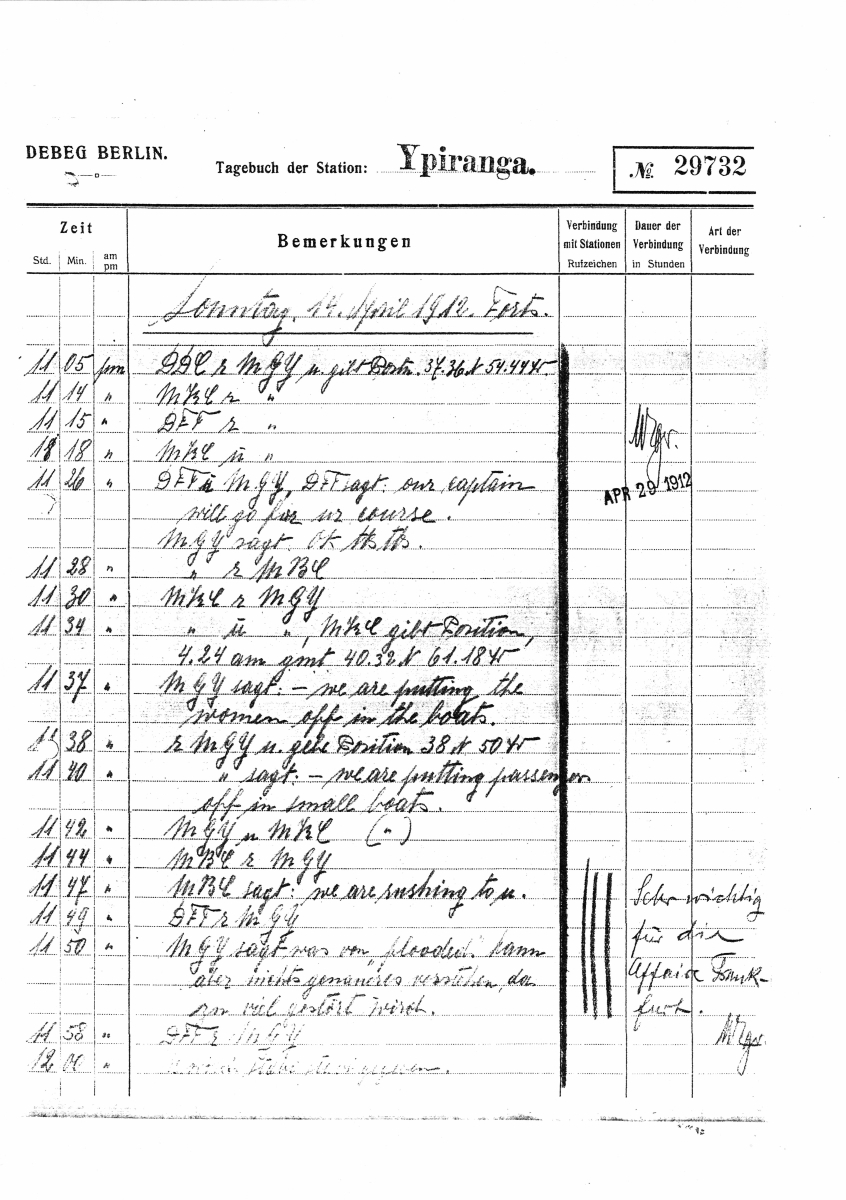 DEBEG BERLIN.
Tagebuch der Station: Ypiranga.
№ 29732
Zeit
Std. Min. am pm
Bemerkungen
Verbindung mit Stationen Rufzeichen
Dauer der Verbindung in Stunden
Art der Verbindung
Sonntag, 14. April 1912. Forts.
11 05 pm DDC r MGY u. gibt Postn. 37.36 N 54.44 W.
11 14 " MKC r "
11 15 " DFT r "
18 " MKC u "
11 26 " DFT u MGY, DFT sagt: our captain
will go for ur course.
MGY sagt. OK tks tks.
11 28 " " r MBC
11 30 " MKC r MGY
11 34 " " u ", MKC gibt Position,
4.24 am gmt 40.32 N 61.18 W
11 37 " MGY sagt: – we are putting the
women off in the boats.
38 " r MGY u. gebe Position 38 N 50 W
11 40 " " sagt: – we are putting passengers
off in small boats.
11 42 " MGY u MKC (")
11 44 " MBC r MGY
11 47 " MBC sagt: we are rushing to u.
11 49 " DFT r MGY
11 50 " MGY sagt was von „flooded" kann
aber nichts genaueres verstehen, da
zu viel gestört wird.
11 58 " DFT r MGY
12 00 "
APR 29 1912
Sehr wichtig
für die
Affaire Frank-
furt.